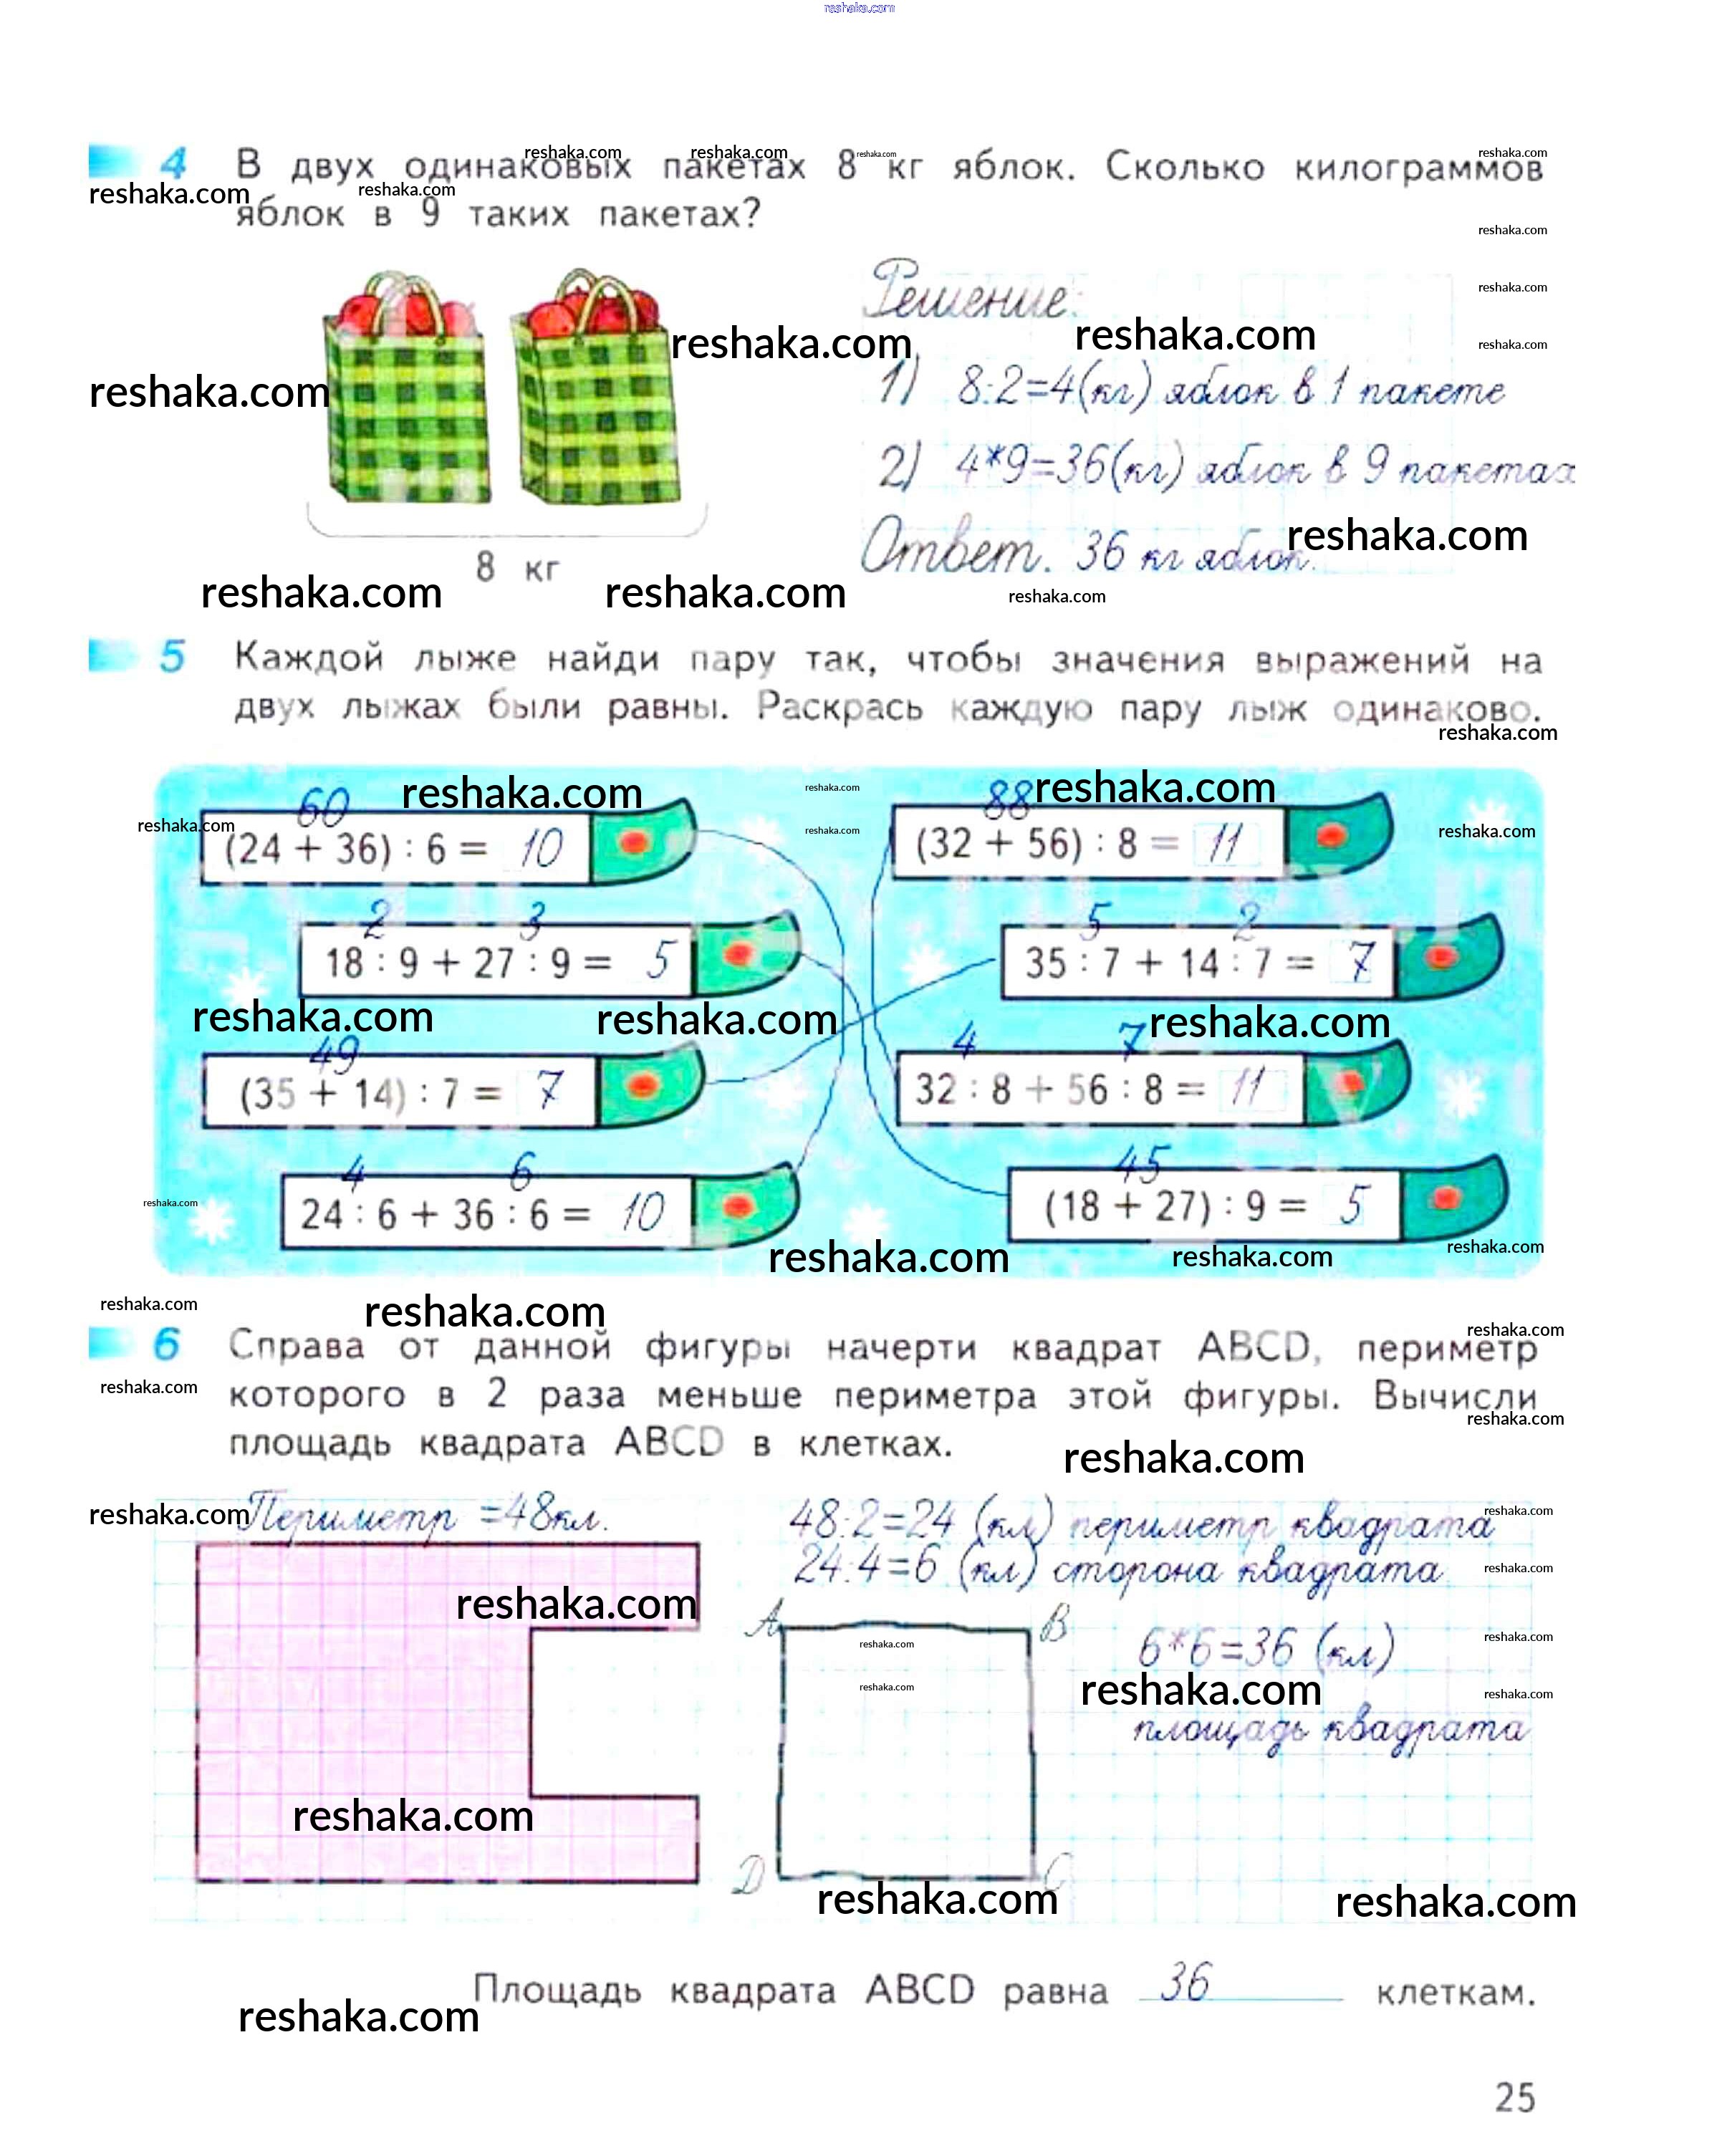 reshaka.com
4 В двух одинаковых пакетах 8 кг яблок. Сколько килограммов
яблок в 9 таких пакетах?
Решение:
1) 8:2=4(кг) яблок в 1 пакете
2) 4*9=36(кг) яблок в 9 пакетах
Ответ. 36 кг яблок.
8 кг
reshaka.com
5 Каждой лыже найди пару так, чтобы значения выражений на
двух лыжах были равны. Раскрась каждую пару лыж одинаково.
60
(24 + 36) : 6 = 10
88
(32 + 56) : 8 = 11
2 3
18 : 9 + 27 : 9 = 5
5 2
35 : 7 + 14 : 7 = 7
49
(35 + 14) : 7 = 7
4 7
32 : 8 + 56 : 8 = 11
4 6
24 : 6 + 36 : 6 = 10
45
(18 + 27) : 9 = 5
reshaka.com
6 Справа от данной фигуры начерти квадрат ABCD, периметр
которого в 2 раза меньше периметра этой фигуры. Вычисли
площадь квадрата ABCD в клетках.
Периметр =48кл.
48:2=24 (кл) периметр квадрата
24:4=6 (кл) сторона квадрата
A B
6*6=36 (кл)
площадь квадрата
D C
reshaka.com
Площадь квадрата ABCD равна 36 клеткам.
reshaka.com
25